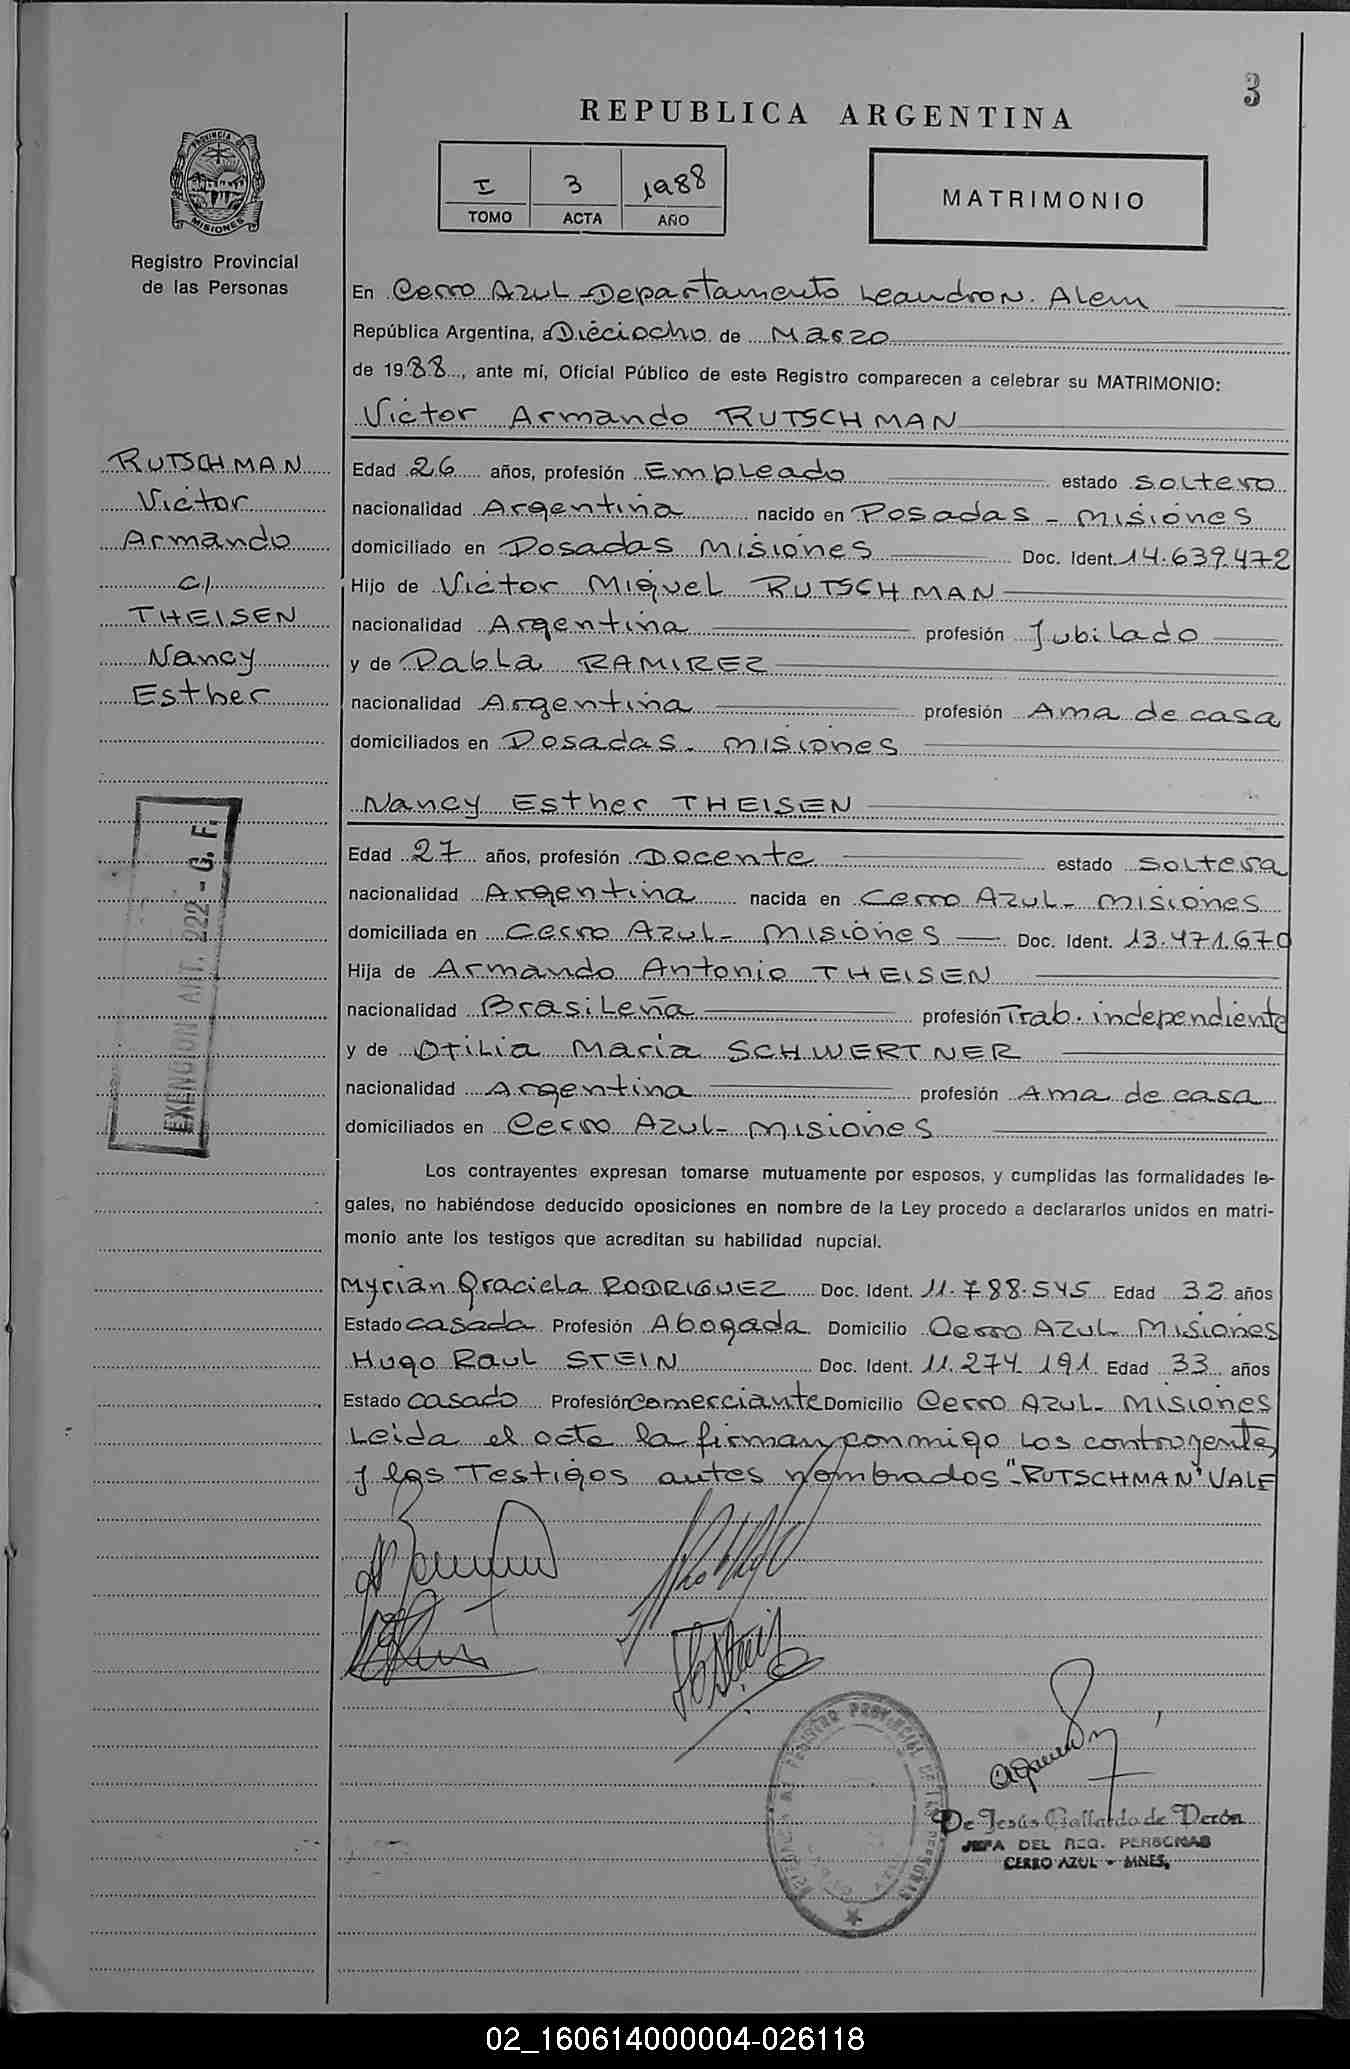 3
REPUBLICA ARGENTINA
I 3 1988
TOMO ACTA AÑO
MATRIMONIO
PROVINCIA DE
MISIONES
Registro Provincial
de las Personas
En Cerro Azul - Departamento Leandro N. Alem
República Argentina, a Dieciocho de Marzo
de 1988, ante mí, Oficial Público de este Registro comparecen a celebrar su MATRIMONIO:
Victor Armando RUTSCHMAN
RUTSCHMAN
Victor
Armando
c/
THEISEN
Nancy
Esther
Edad 26 años, profesión Empleado estado soltero
nacionalidad Argentina nacido en Posadas - Misiones
domiciliado en Posadas Misiones Doc. Ident. 14.639.472
Hijo de Victor Miguel RUTSCHMAN
nacionalidad Argentina profesión Jubilado
y de Pabla RAMIREZ
nacionalidad Argentina profesión Ama de casa
domiciliados en Posadas - Misiones
Nancy Esther THEISEN
EXENCION ART. 222 - G. F.
Edad 27 años, profesión Docente estado soltera
nacionalidad Argentina nacida en Cerro Azul - Misiones
domiciliada en Cerro Azul - Misiones Doc. Ident. 13.471.670
Hija de Armando Antonio THEISEN
nacionalidad Brasileña profesión Trab. independiente
y de Otilia Maria SCHWERTNER
nacionalidad Argentina profesión Ama de casa
domiciliados en Cerro Azul - Misiones
Los contrayentes expresan tomarse mutuamente por esposos, y cumplidas las formalidades le-
gales, no habiéndose deducido oposiciones en nombre de la Ley procedo a declararlos unidos en matri-
monio ante los testigos que acreditan su habilidad nupcial.
Myrian Graciela RODRIGUEZ Doc. Ident. 11.788.545 Edad 32 años
Estado casada Profesión Abogada Domicilio Cerro Azul - Misiones
Hugo Raul STEIN Doc. Ident. 11.274.191 Edad 33 años
Estado casado Profesión comerciante Domicilio Cerro Azul - Misiones
Leida el acta la firman conmigo los contrayentes
y los Testigos antes nombrados "RUTSCHMAN" VALE
REGISTRO PROVINCIAL DE LAS PERSONAS
De Jesús Gallardo de Perón
JEFA DEL REG. PERSONAS
CERRO AZUL - MNES.
02_160614000004-026118